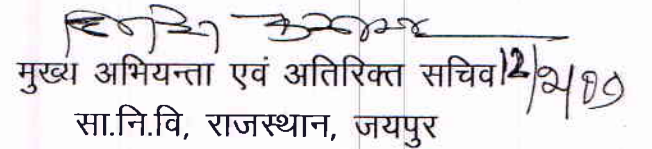 मुख्य अभियन्ता एवं अतिरिक्त सचिव
सा.नि.वि, राजस्थान, जयपुर